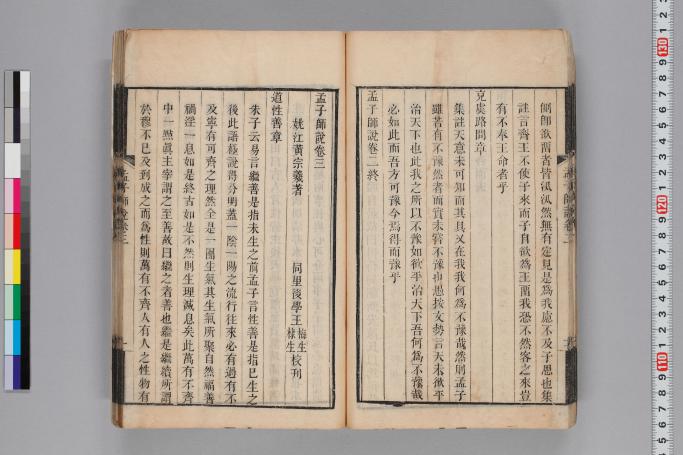 則師欲留者皆汎汎然無有定見是為我慮不及子思也集
註言齊王不使子來而子自欲為王留我恐不然客之來豈
有不奉王命者乎
充虞路問章
集註天意未可知而其具又在我我何為不豫哉然則孟子
雖若有不豫然者而實未嘗不豫也愚按文勢言天未欲平
治天下也此我之所以不豫如欲平治天下吾何為不豫哉
必如此而吾方可豫今焉得而豫乎
孟子師說卷二終
孟子師說卷三
姚江黃宗羲著
同里後學王梅生棣生校刊
道性善章
朱子云易言繼善是指未生之前孟子言性善是指已生之
後此語極說得分明蓋一陰一陽之流行往來必有過有不
及寧有可齊之理然全是一團生氣其生氣所聚自然福善
禍淫一息如是終古如是不然則生理滅息矣此萬有不齊
中一點真主宰謂之至善故曰繼之者善也繼是繼續所謂
於穆不已及到成之而為性則萬有不齊人有人之性物有
孟子師說卷三